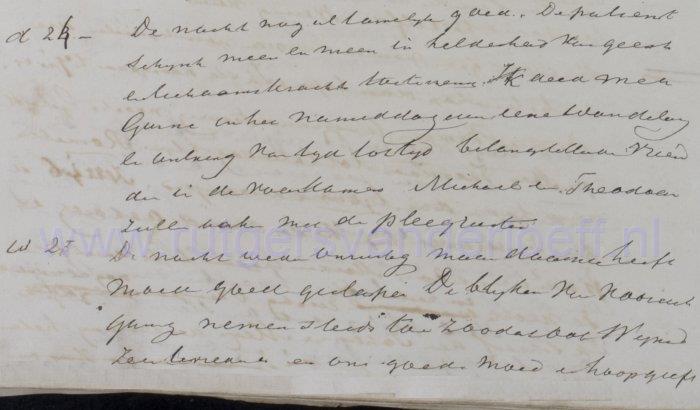 d 24 – De nacht nog al tamelijk goed. De patient
schijnt meer en meer in helderheid van geest
en lichaamskracht toetenemen. Ik deed met
in den namiddag een wandeling
en ontving van tijd tot tijd belangstellende vrien
den in de voorkamer Michael en Theodoor
zullen waken met de pleegzuster
w 25 De nacht weder onrustig maar daarna heeft
goed geslapen De blijken van vooruit
gang nemen steeds toe zoodat ook
zeer tevreden is en ons goede moed en hoop geeft
www.rutgersvanderloeff.nl